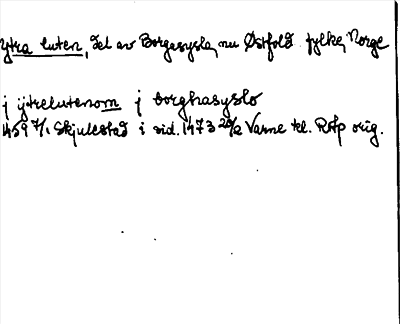 Ytra luten, del av Borgesysla, nu Østfold fylke, Norge
j ytrelutenom j borghasyslo
1459 7/1 Skjulestad i vid. 1473 20/2 Varne kl. RAp orig.